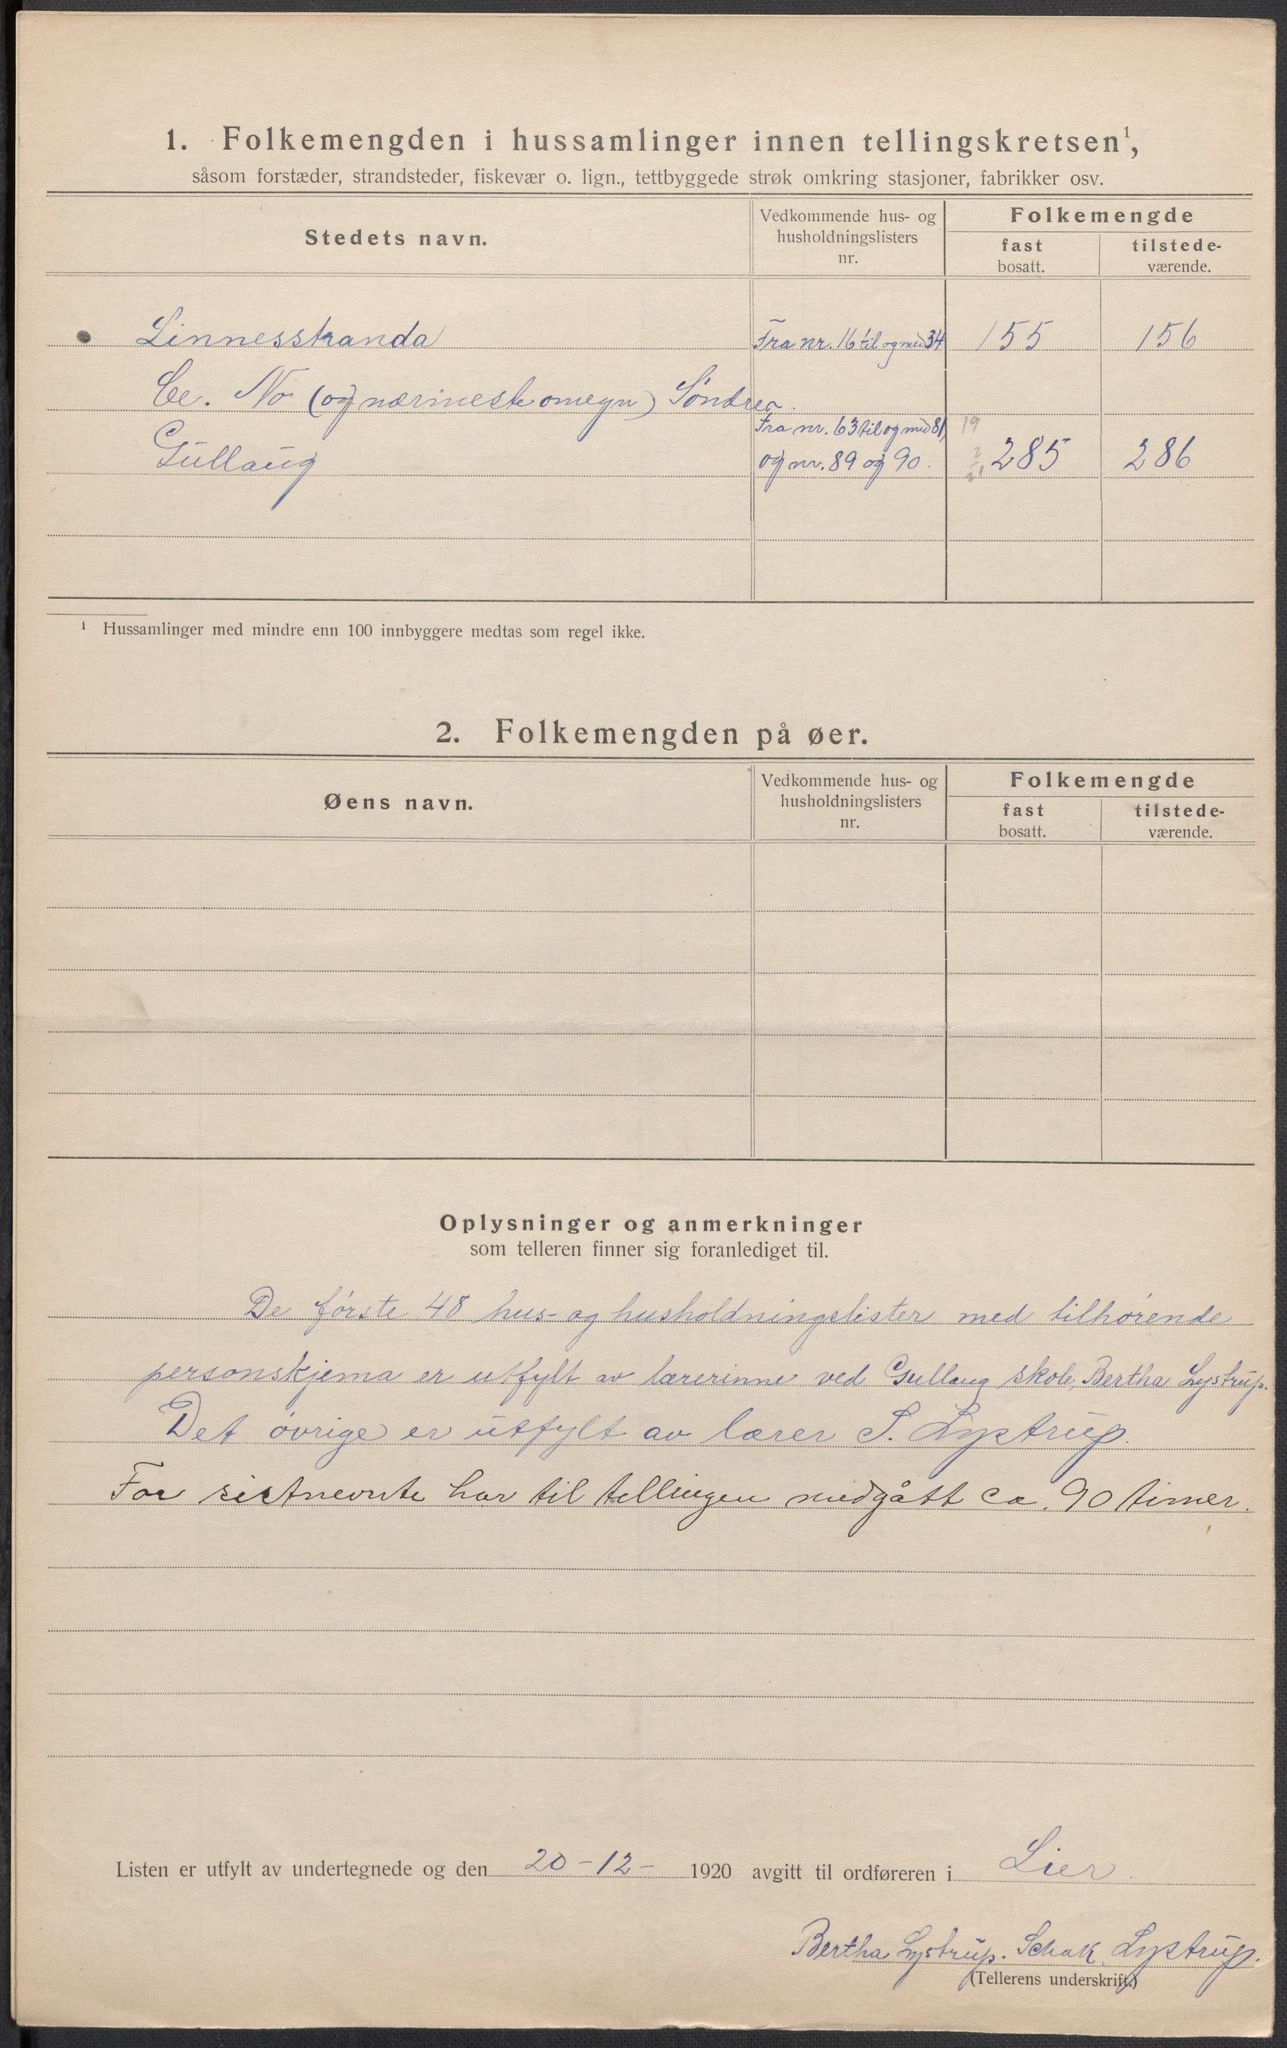 1. Folkemengden i hussamlinger innen tellingskretsen¹,
såsom forstæder, strandsteder, fiskevær o. lign., tettbyggede strøk omkring stasjoner, fabrikker osv.
Stedets navn.
Vedkommende hus- og husholdningslisters nr.
Folkemengde
fast bosatt.
tilstede-værende.
Linnesstranda Fra nr. 16 til og med 34 155 156
No (og nærmeste omegn) Söndre
Fra nr. 63 til og med 81, 19
Gullaug og nr. 89 og 90. 2 21 285 286
¹ Hussamlinger med mindre enn 100 innbyggere medtas som regel ikke.
2. Folkemengden på øer.
Øens navn.
Vedkommende hus- og husholdningslisters nr.
Folkemengde
fast bosatt.
tilstede-værende.
Oplysninger og anmerkninger
som telleren finner sig foranlediget til.
De første 48 hus- og husholdningslister med tilhørende
personskjema er utfylt av lærerinne ved Gullaug skole, Bertha Lystrup.
Det øvrige er utfylt av lærer S. Lystrup.
For sistnevnte har til tellingen medgått ca. 90 timer.
Listen er utfylt av undertegnede og den 20-12- 1920 avgitt til ordføreren i Lier.
Bertha Lystrup. Schak Lystrup.
(Tellerens underskrift.)